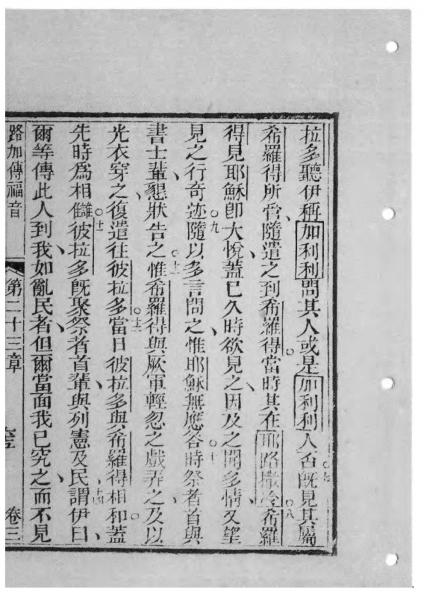 拉多聽伊稱加利利問其人或是加利利人否○七既見其屬
希羅得所管隨遣之到希羅得當時其在耶路撒冷○八希羅
得見耶穌卽大悅蓋已久時欲見之因及之聞多情又望
見之行奇迹○九隨以多言問之惟耶穌無應答○十時祭者首與
書士輩懇狀告之○十一惟希羅得與厥軍輕忽之戲弄之及以
光衣穿之復遣往彼拉多○十二當日彼拉多與希羅得相和蓋
先時爲相讎○十三彼拉多旣聚祭者首輩與列憲及民○十四謂伊曰
爾等傳此人到我如亂民者但爾當面我已究之而不見
路加傳福音 第二十三章 卷三